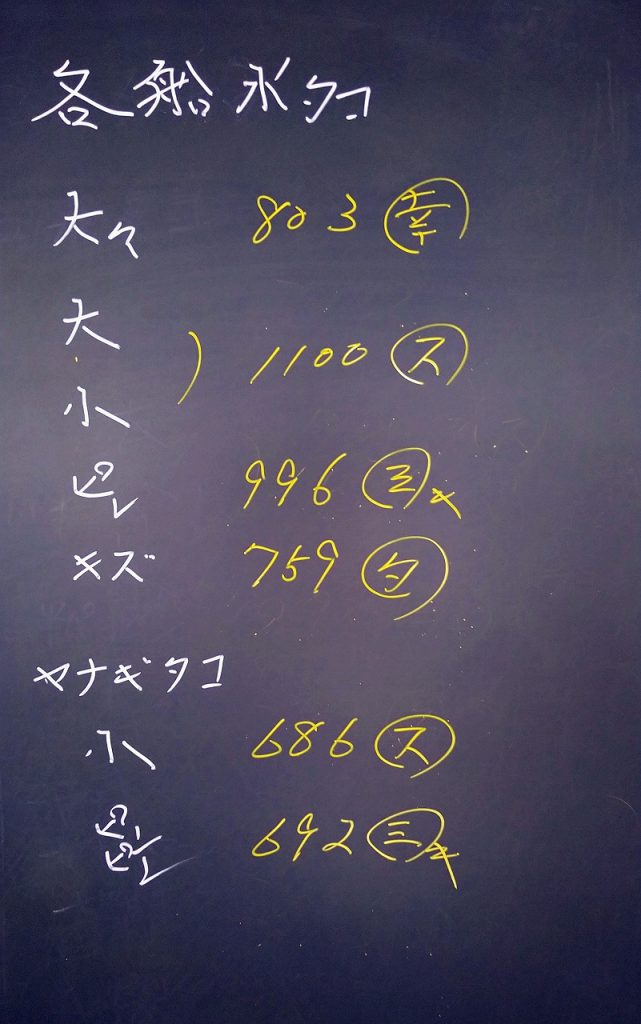 各船水タコ
大々 803 幸
大
) 1100 ス
小
ピン 996 三キ
キズ 759
ヤナギタコ
小 686 ス
ピンピン 692 三キ